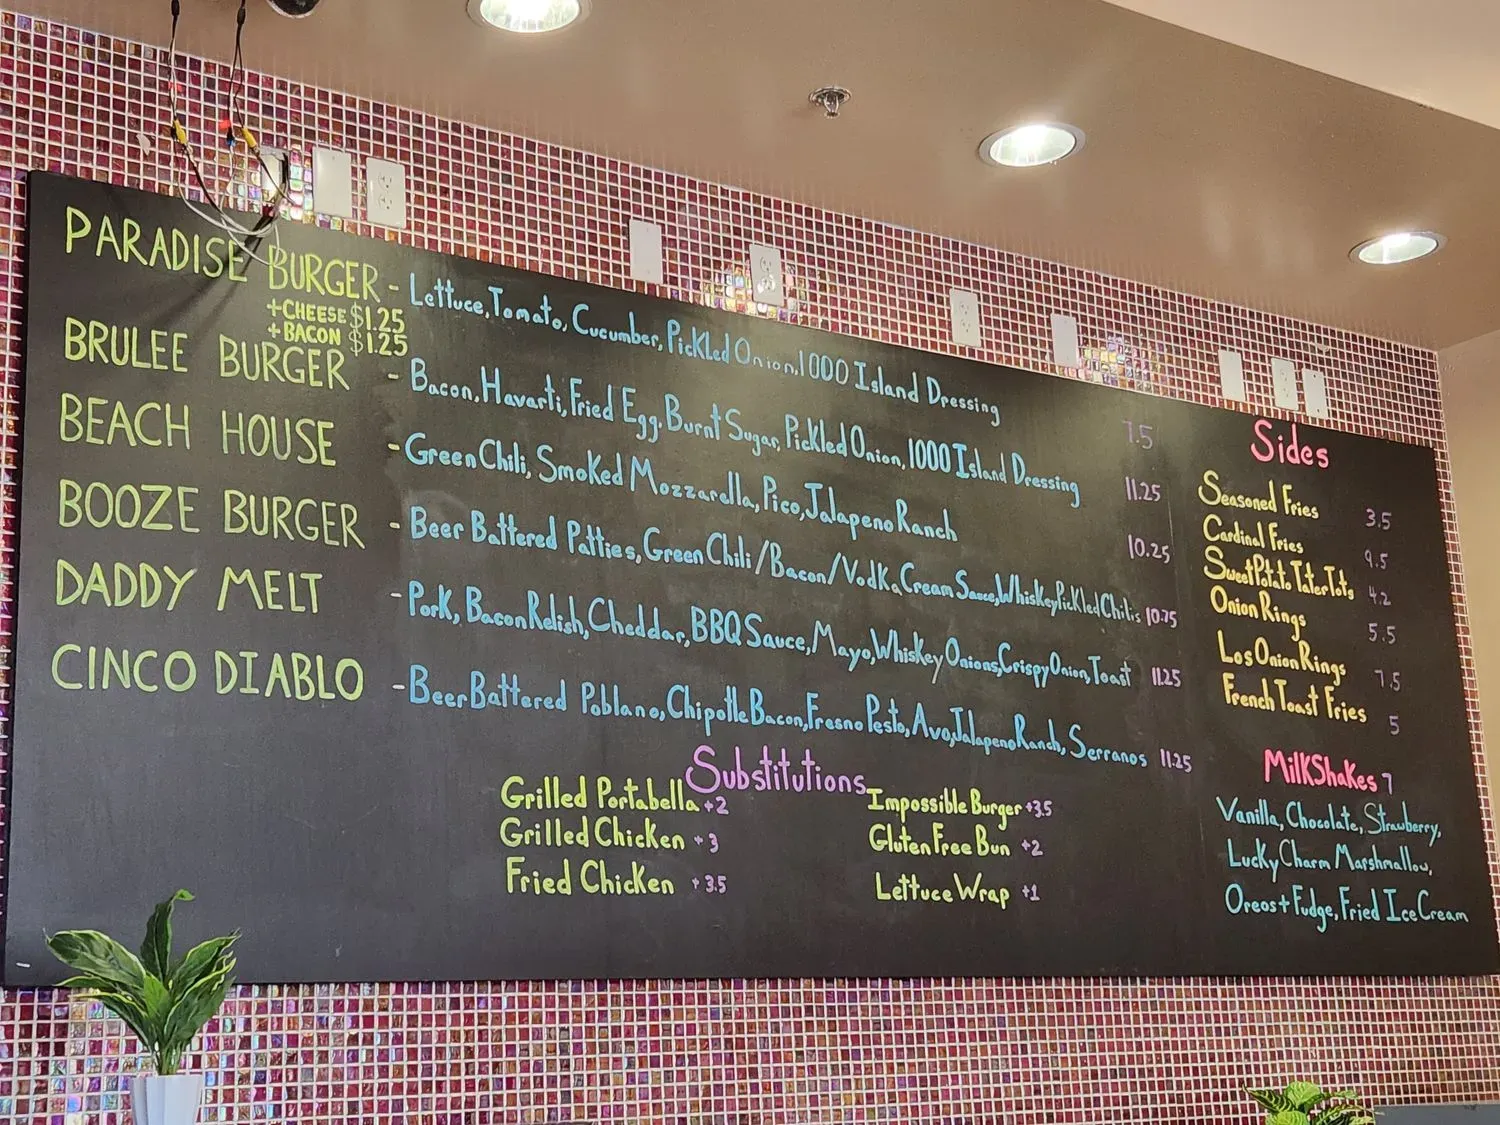 PARADISE BURGER - Lettuce, Tomato, Cucumber, Pickled Onion, 1000 Island Dressing 7.5
+CHEESE $1.25
+BACON $1.25
BRULEE BURGER - Bacon, Havarti, Fried Egg, Burnt Sugar, Pickled Onion, 1000 Island Dressing 11.25
BEACH HOUSE - Green Chili, Smoked Mozzarella, Pico, Jalapeno Ranch 10.25
BOOZE BURGER - Beer Battered Patties, Green Chili/Bacon/Vodka Cream Sauce, Whiskey Pickled Chilis 10.75
DADDY MELT - Pork, Bacon Relish, Cheddar, BBQ Sauce, Mayo, Whiskey Onions, Crispy Onion, Toast 11.25
CINCO DIABLO - Beer Battered Poblano, Chipotle Bacon, Fresno Pesto, Avo, Jalapeno Ranch, Serranos 11.25
Substitutions
Grilled Portabella +2
Grilled Chicken +3
Fried Chicken +3.5
Impossible Burger +3.5
Gluten Free Bun +2
Lettuce Wrap +1
Sides
Seasoned Fries 3.5
Cardinal Fries 9.5
Sweet Potato Tater Tots 4.2
Onion Rings 5.5
Los Onion Rings 7.5
French Toast Fries 5
MilkShakes 7
Vanilla, Chocolate, Strawberry,
Lucky Charm Marshmallow,
Oreos + Fudge, Fried Ice Cream